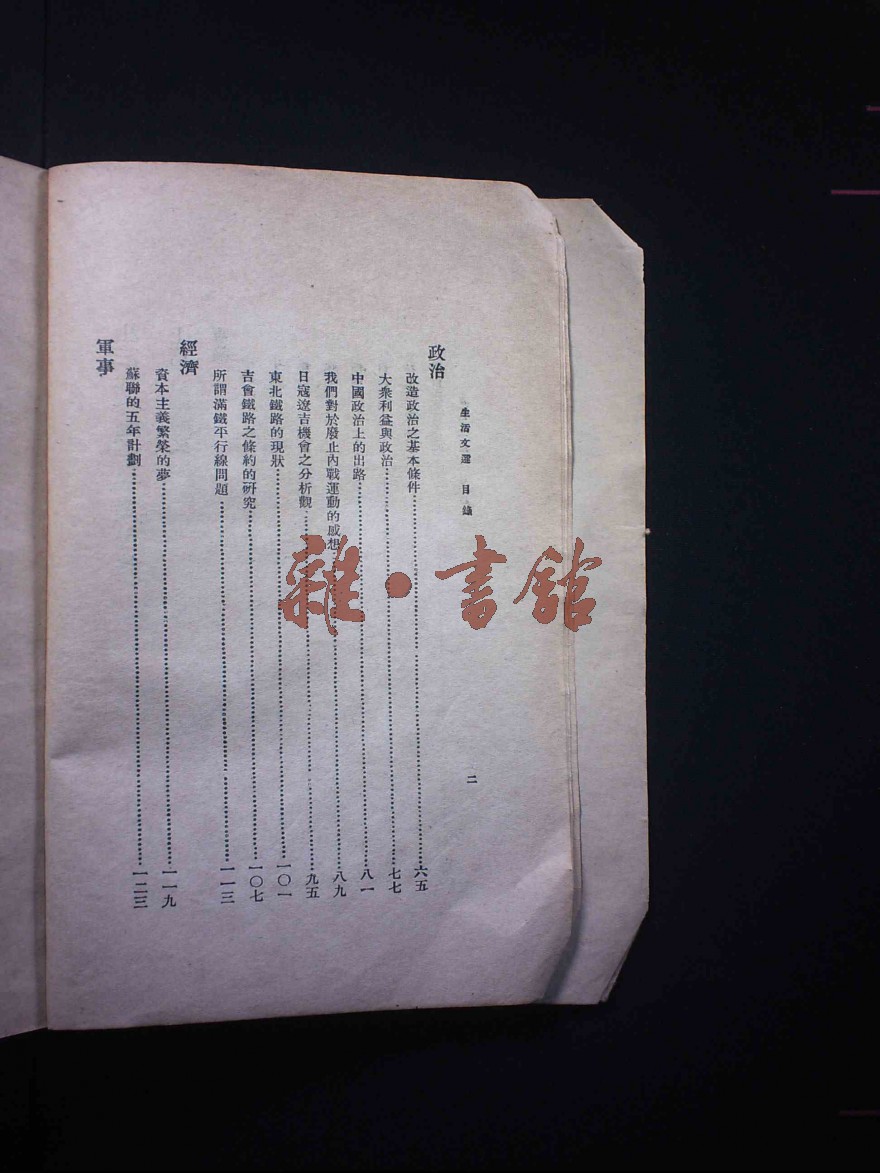 生活文選 目錄 二
政治
改造政治之基本條件 六五
大衆利益與政治 七七
中國政治上的出路 八一
我們對於廢止內戰運動的感想 八九
日寇遼吉機會之分析觀 九五
東北鐵路的現狀 一〇一
吉會鐵路之條約的研究 一〇七
所謂滿鐵平行線問題 一一三
經濟
資本主義繁榮的夢 一一九
蘇聯的五年計劃 一二三
軍事
雜·書館